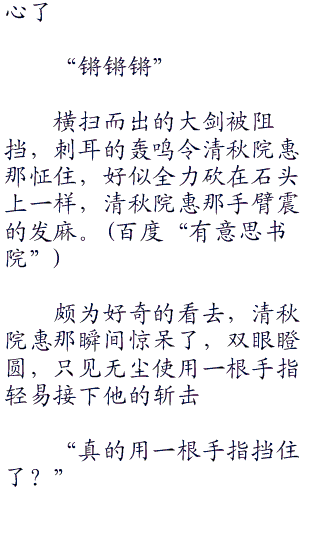 心了
“锵锵锵”
横扫而出的大剑被阻
挡，刺耳的轰鸣令清秋院惠
那怔住，好似全力砍在石头
上一样，清秋院惠那手臂震
的发麻。(百度“有意思书
院”)
颇为好奇的看去，清秋
院惠那瞬间惊呆了，双眼瞪
圆，只见无尘使用一根手指
轻易接下他的斩击
“真的用一根手指挡住
了？”